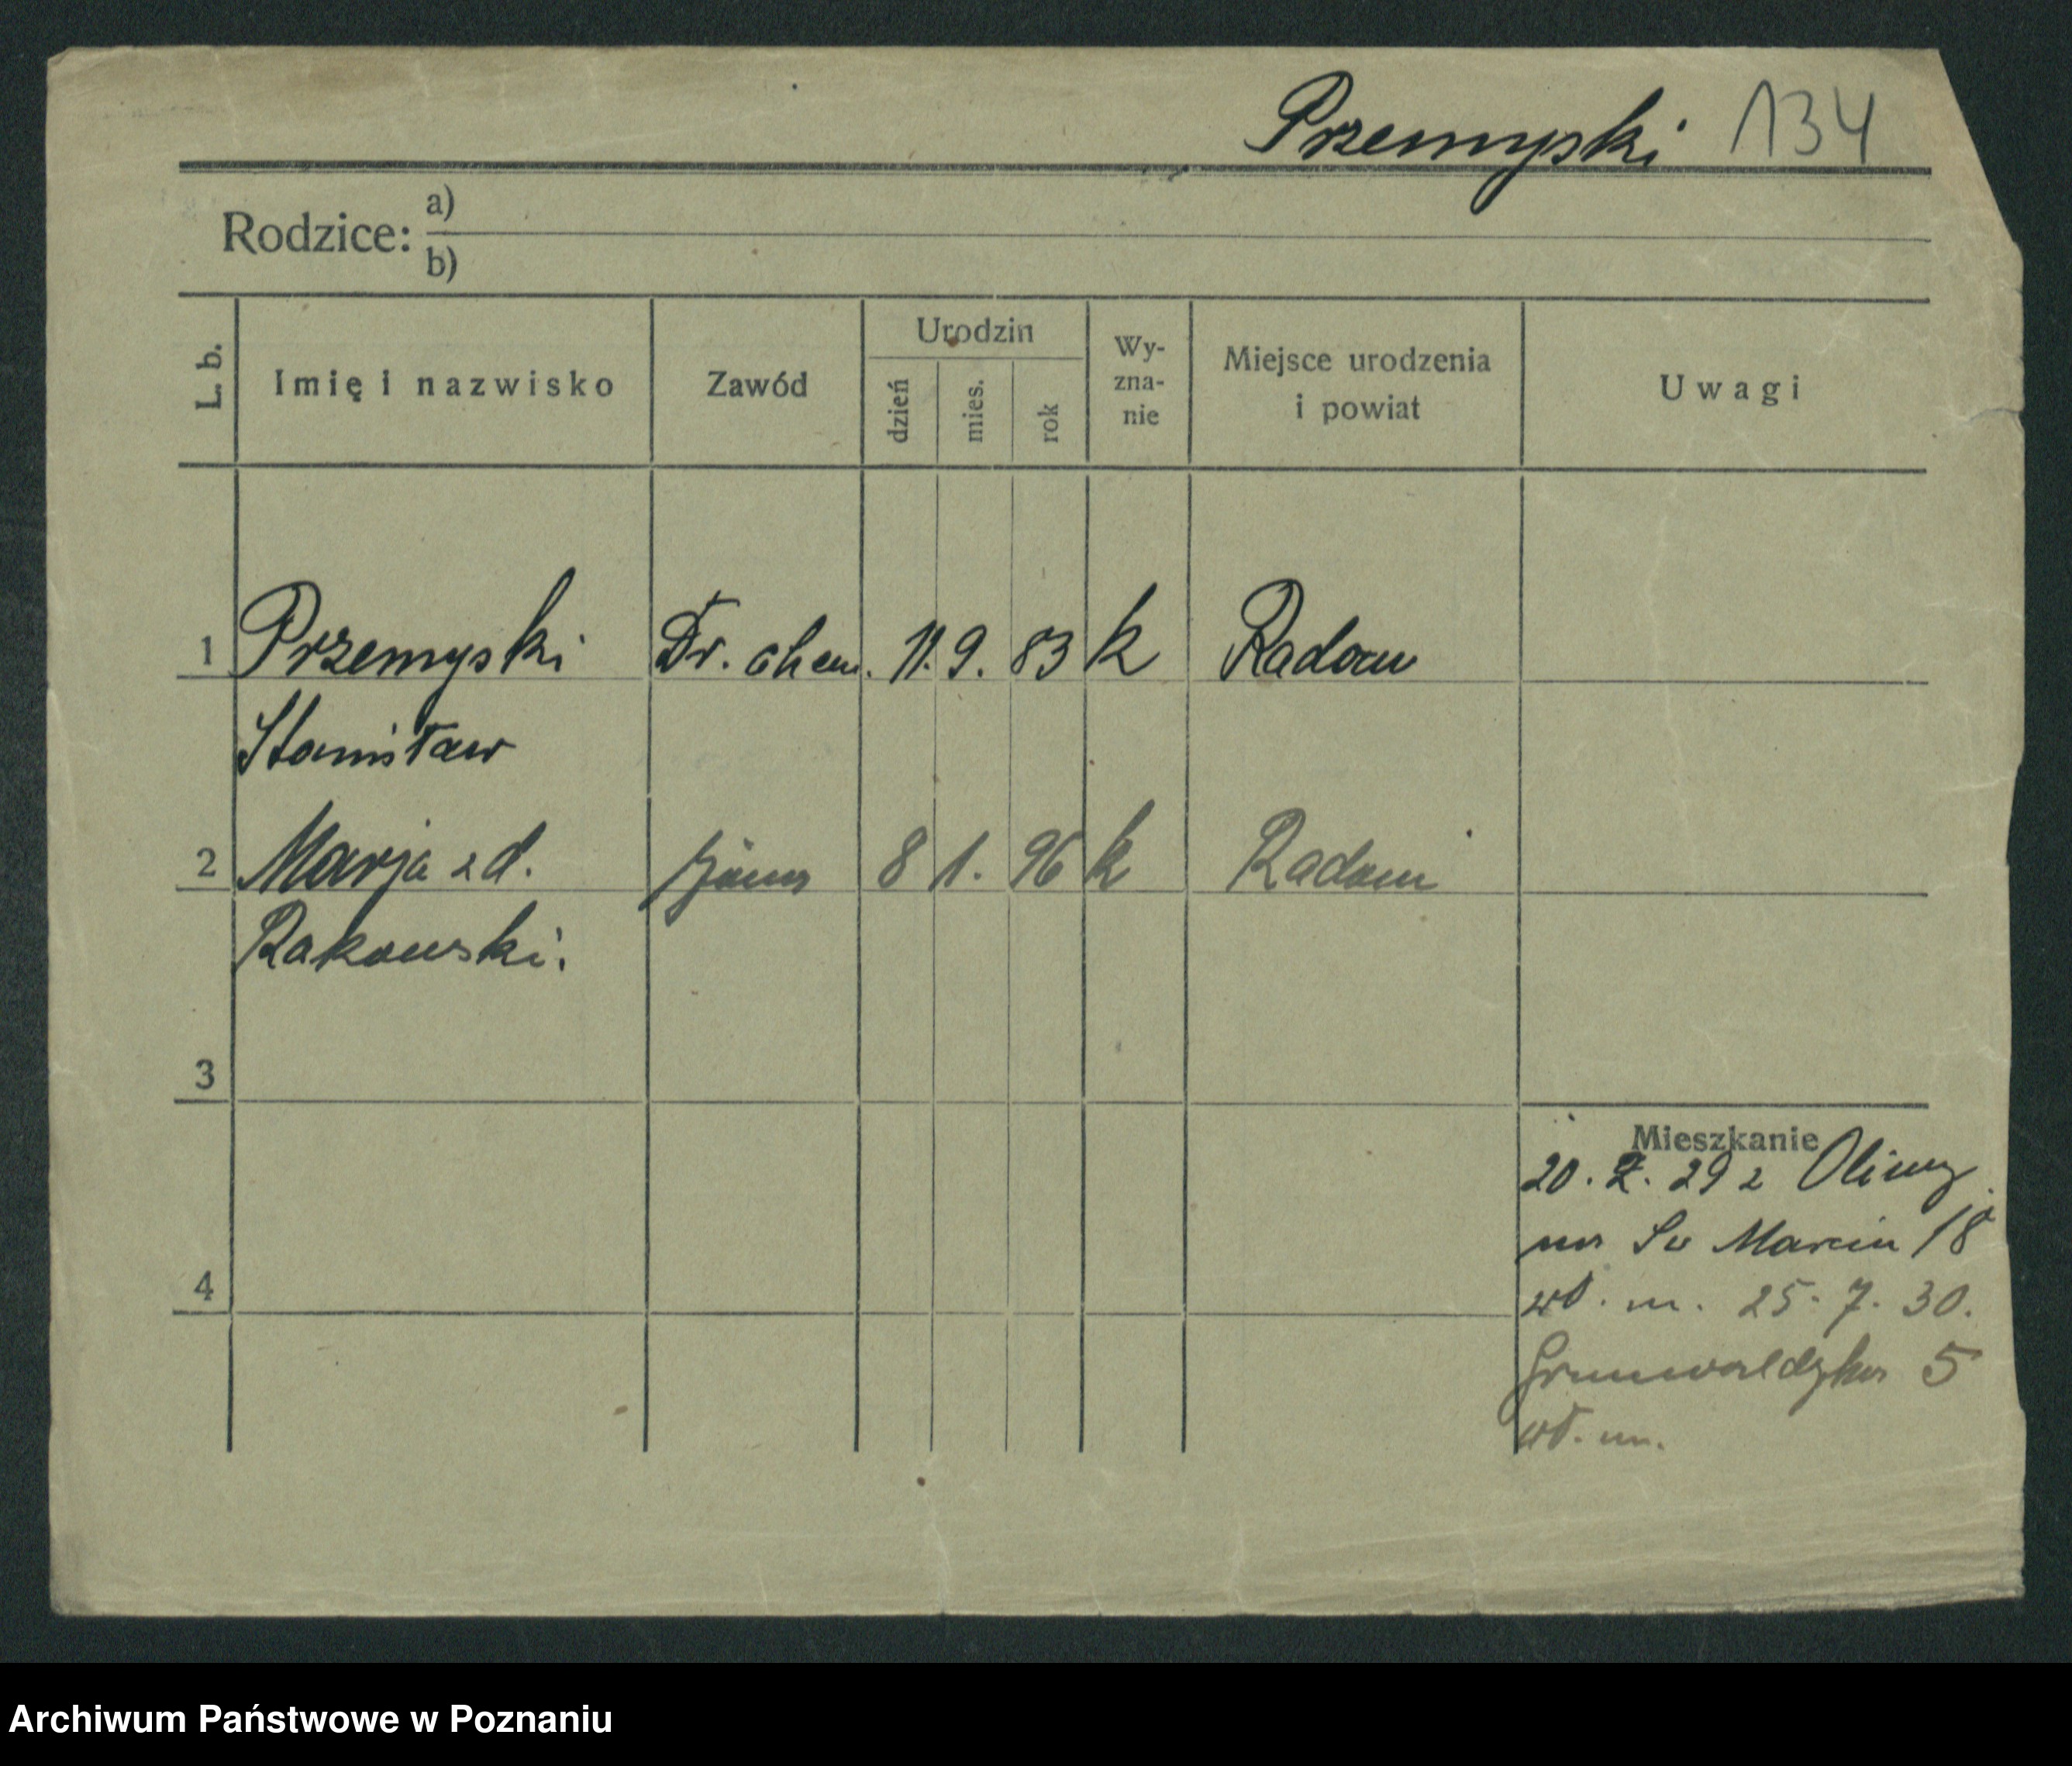 Przemyski 134
Rodzice: a)
b)
L. b.
Imię i nazwisko
Zawód
Urodzin
dzień
mies.
rok
Wy-
zna-
nie
Miejsce urodzenia
i powiat
Uwagi
1 Przemyski Dr. chem. 11. 9. 83 k Radom
Stanisław
2 Marja z d. żona 8 1. 96 k Radom
Rakowski.
3
4
Mieszkanie
20. 2. 29 z Oliwy
na Św Marcin 18
wł. m. 25. 7. 30.
Grunwaldzka 5
wł. m.
Archiwum Państwowe w Poznaniu